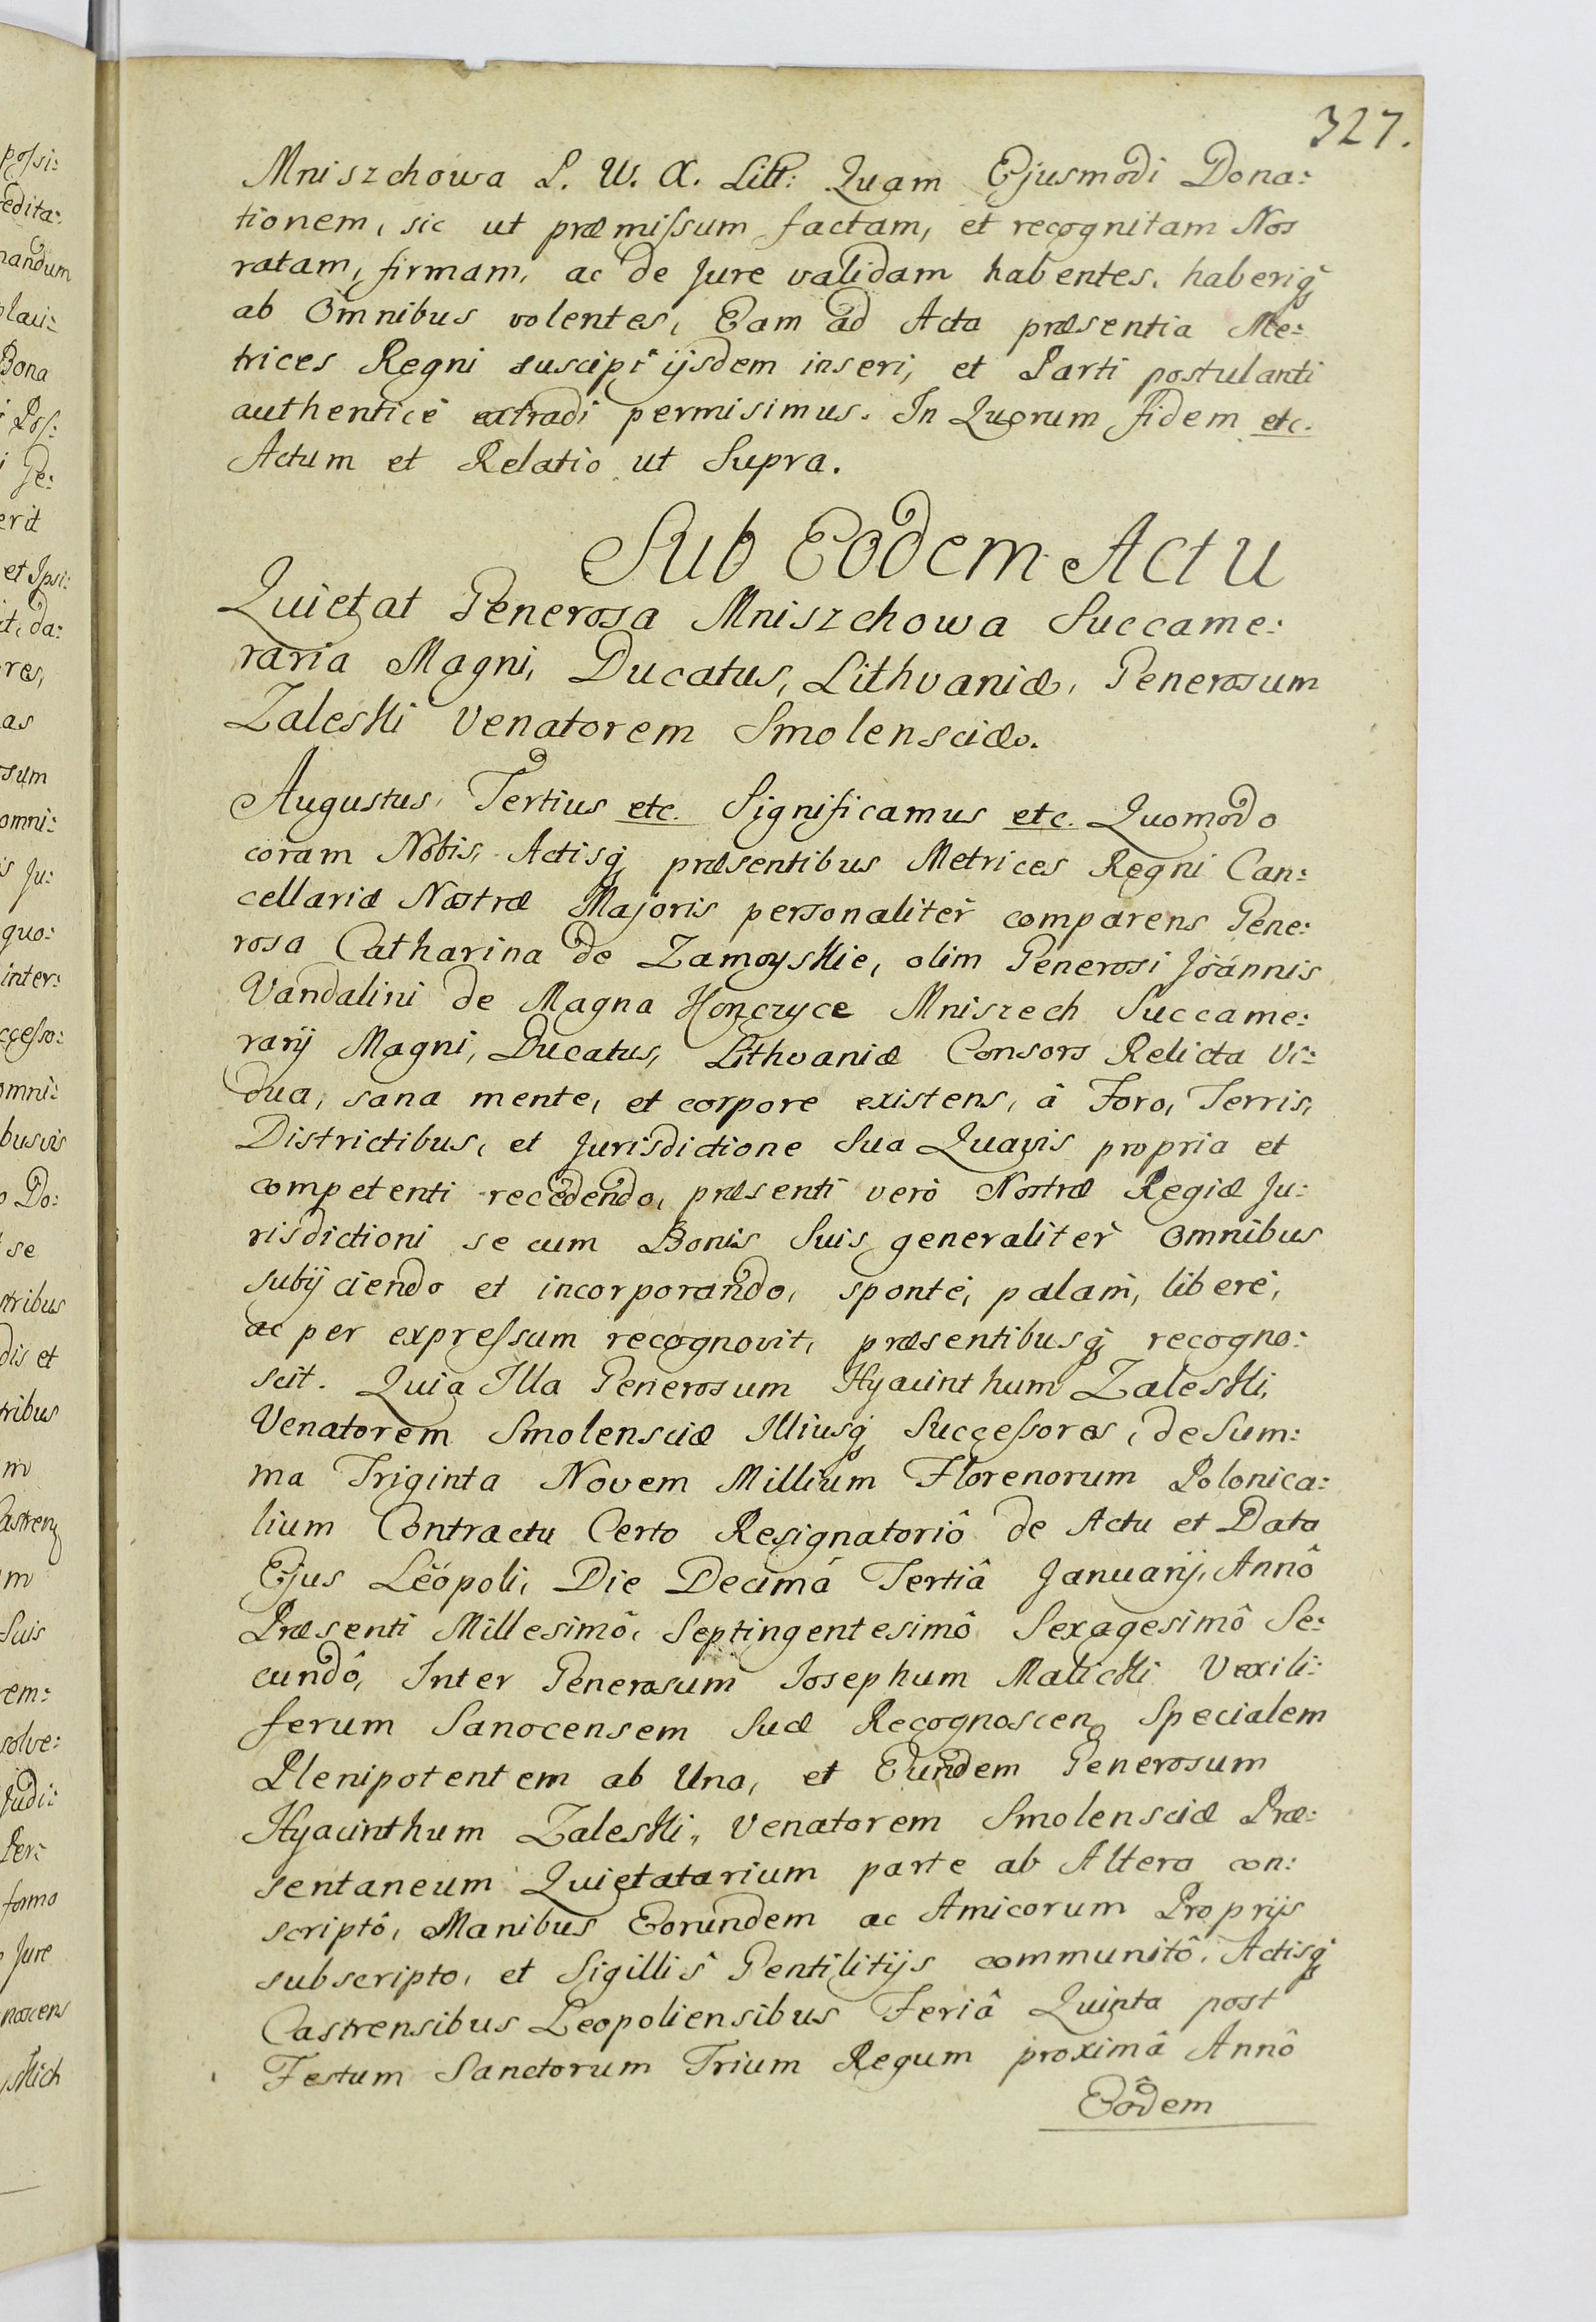 327.
Mniszchowa P. W. X. Litt: Quam Ejusmodi Dona:
tionem, sic ut præmissum factam, et recognitam Nos
ratam, firmam, ac de Jure validam habentes, haberiq
ab Omnibus volentes, Eam ad Acta præsentia Me:
trices Regni suscipi ijsdem inseri, et Parti postulanti
authenticè extradi permisimus. In Quorum fidem etc.
Actum et Relatio ut Supra.
Sub Eodem Actu
Quietat Generosa Mniszchowa Succame:
raria Magni, Ducatus, Lithvaniæ, Generosum
Zaleski Venatorem Smolensciæ.
Augustus, Tertius etc. Significamus etc. Quomodo
coram Nobis, Actisq præsentibus Metrices Regni Can:
cellariæ Nostræ Majoris personalitèr comparens Gene:
rosa Catharina de Zamoyskie, olim Generosi Joannis
Vandalini de Magna Konczyce Mniszech Succame:
rarij Magni, Ducatus, Lithvaniæ Consors Relicta Vi:
dua, sana mente, et corpore existens, â Foro, Terris,
Districtibus, et Jurisdictione Sua Quavis propria et
competenti recedendo, præsenti verò Nostræ Regiæ Ju:
risdictioni se cum Bonis Suis generalitèr Omnibus
subijciendo et incorporando, spontè, palàm, liberè,
ac per expressum recognovit, præsentibusq recogno:
scit. Quia Illa Generosum Hyacinthum Zaleski,
Venatorem Smolensciæ Illiusq Successores, de Sum:
ma Triginta Novem Millium Florenorum Polonica:
lium Contractu Certo Resignatoriô de Actu et Data
Ejus Leopoli, Die Decimâ Tertiâ Januarij, Annô
Præsenti Millesimô, Septingentesimô Sexagesimô Se:
cundô, Inter Generosum Josephum Malicki Vexili:
ferum Sanocensem Suæ Recognoscen Specialem
Plenipotentem ab Una, et Eundem Generosum
Hyacinthum Zaleski, Venatorem Smolensciæ Præ:
sentaneum Quietatarium parte ab Altera con:
scriptô, Manibus Eorundem ac Amicorum Proprijs
subscripto, et Sigillis Gentilitijs communitô, Actisq
Castrensibus Leopoliensibus Feriâ Quinta post
Festum Sanctorum Trium Regum proximâ Annô
Eôdem